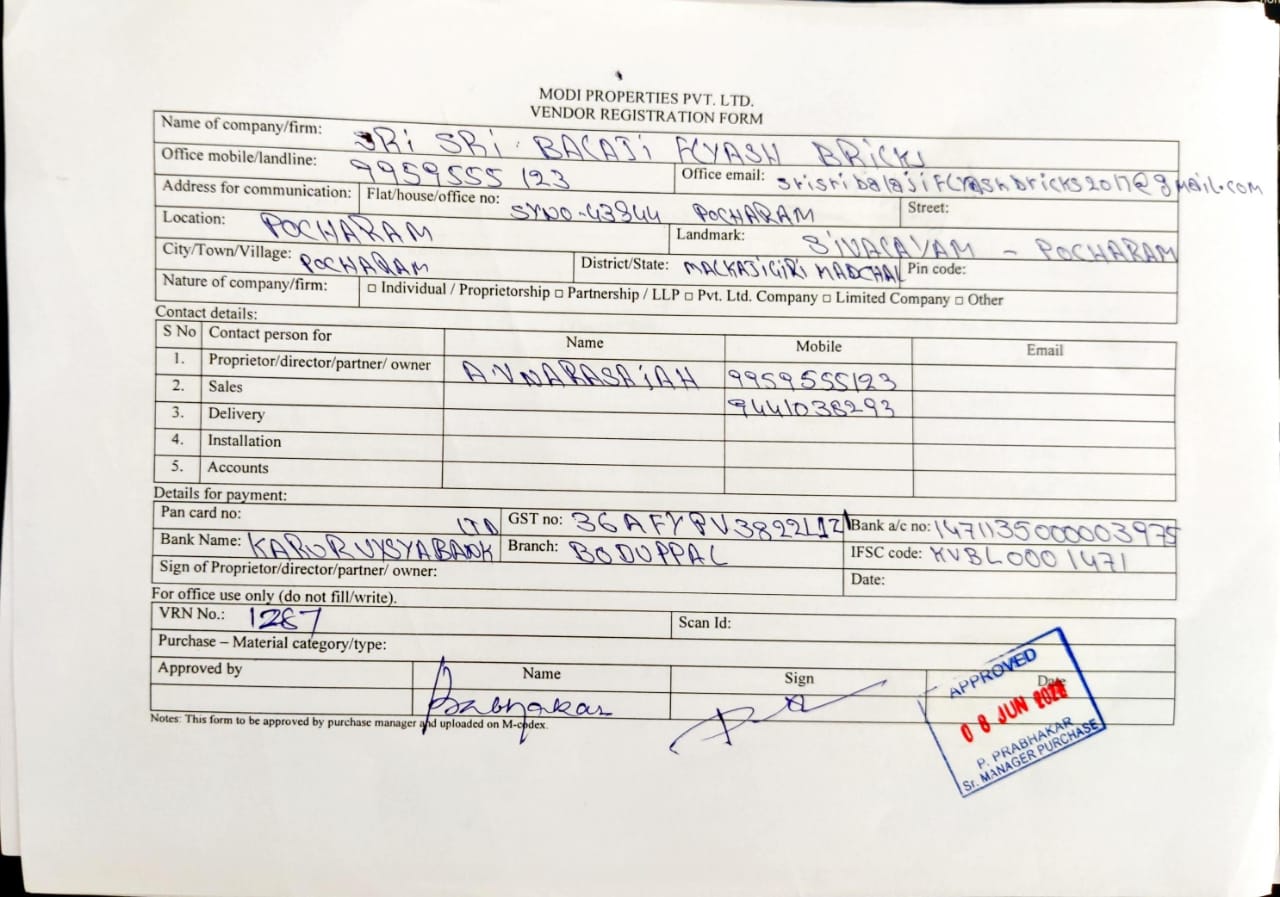 MODI PROPERTIES PVT. LTD.
VENDOR REGISTRATION FORM
Name of company/firm: SRi SRi BALAJi FLYASH BRiCKS
Office mobile/landline: 9959555 123 Office email: srisribalajiFLYashbricks2017@gmail.com
Address for communication: Flat/house/office no: SYNO-43344 POCHARAM Street:
Location: POCHARAM Landmark: SIVALAYAM - POCHARAM
City/Town/Village: POCHARAM District/State: MALKAJIGIRI MADCHAL Pin code:
Nature of company/firm: □ Individual / Proprietorship □ Partnership / LLP □ Pvt. Ltd. Company □ Limited Company □ Other
Contact details:
S No Contact person for Name Mobile Email
1. Proprietor/director/partner/ owner ANNARASAiAH 9959555123
2. Sales 9441038293
3. Delivery
4. Installation
5. Accounts
Details for payment:
Pan card no: GST no: 36AFYPV3822L1Z1 Bank a/c no: 1471135000003975
Bank Name: KARURVYSYABANK LTD Branch: BODUPPAL IFSC code: KVBL0001471
Sign of Proprietor/director/partner/ owner: Date:
For office use only (do not fill/write).
VRN No.: 1287 Scan Id:
Purchase – Material category/type:
Approved by Name Sign Date
Prabhakar
Notes: This form to be approved by purchase manager and uploaded on M-codex.
APPROVED
08 JUN 2022
P. PRABHAKAR
Sr. MANAGER PURCHASE